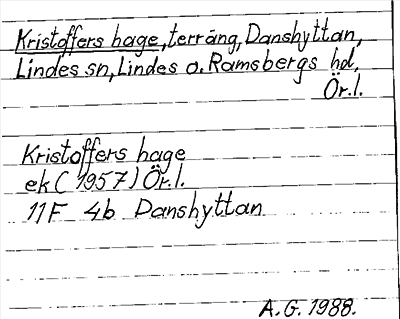 Kristoffers hage, terräng, Danshyttan,
Lindes sn, Lindes o. Ramsbergs hd,
Ör.l.
Kristoffers hage
ek (1957) Ör.l.
11F 4b Danshyttan
A.G. 1988.